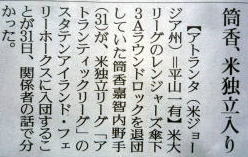 筒香、米独立入り
【アトランタ(米ジョー
ジア州)=平山一有】米大
リーグのレンジャーズ傘下
3Aラウンドロックを退団
していた筒香嘉智内野手
(31)が、米独立リーグ「ア
トランティックリーグ」の
スタテンアイランド・フェ
リーホークスに入団するこ
とが31日、関係者の話で分
かった。